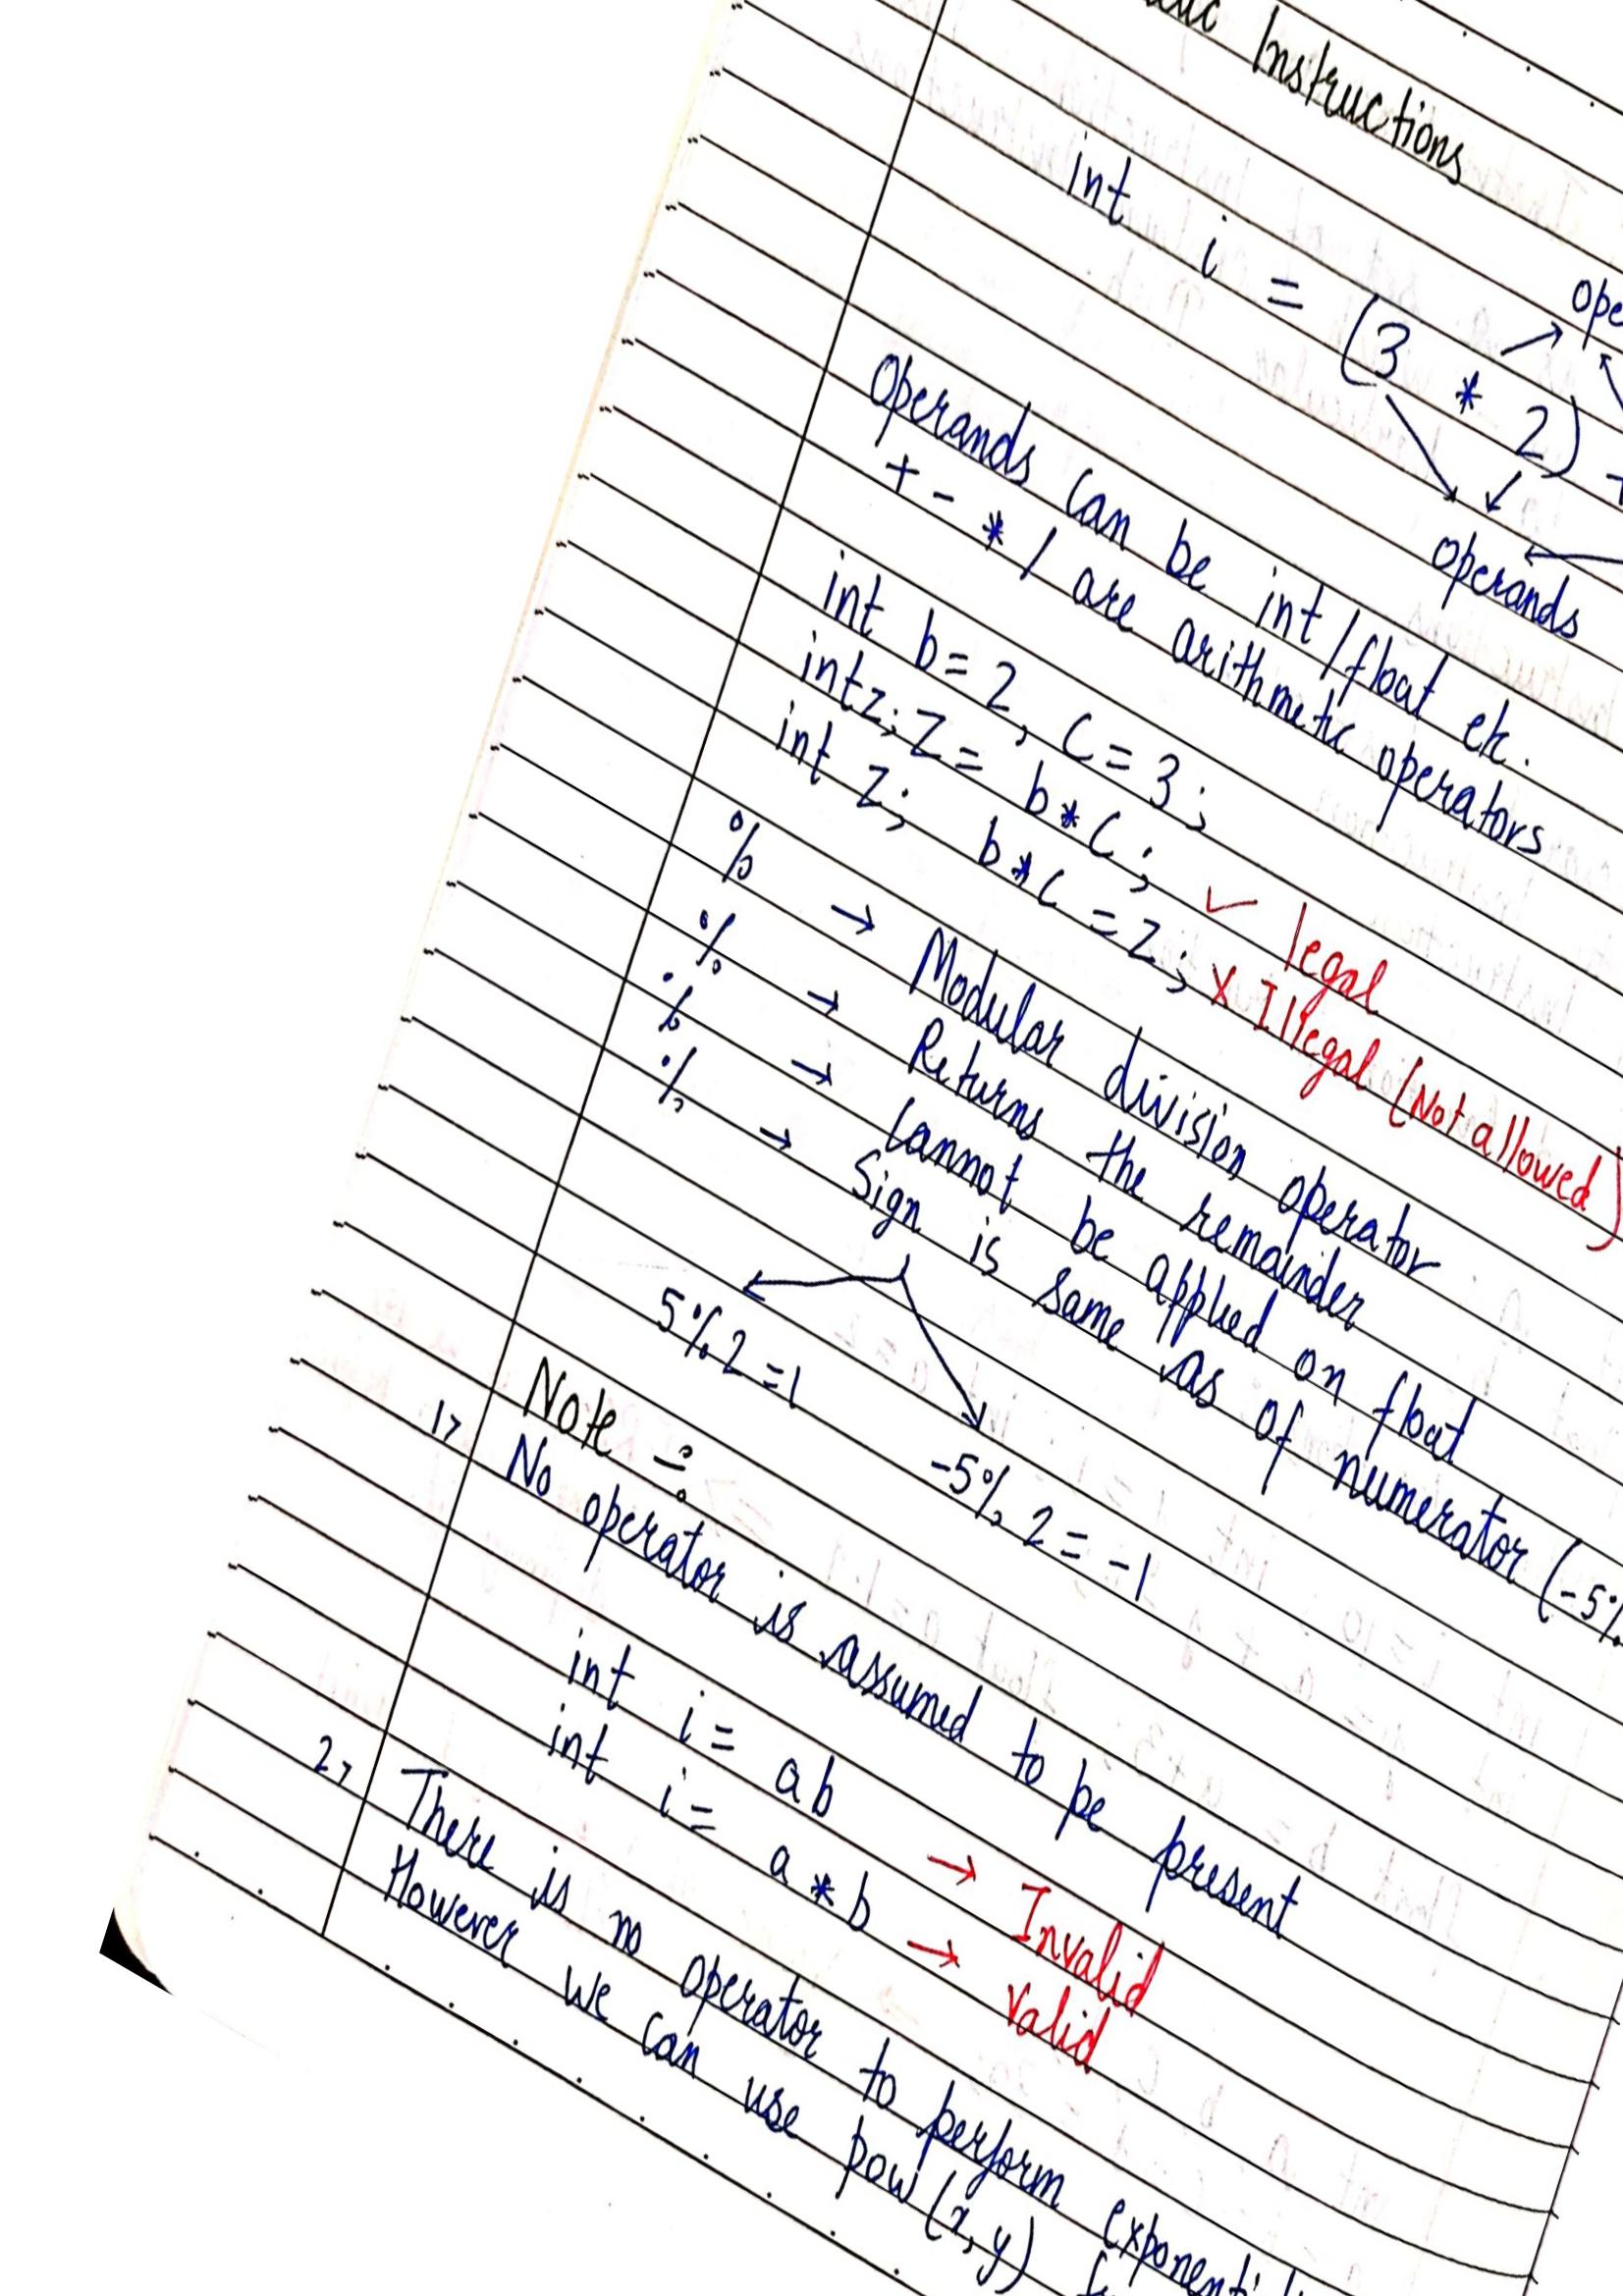 Instructions
int i = (3 * 2)
operands
Operands can be int/float etc.
+ - * / are arithmetic operators
int b = 2, c = 3;
int z; z = b*c; ✓ legal
int z; b*c = z; x Illegal (Not allowed)
% → Modular division operator
% → Returns the remainder
% → Cannot be applied on float
% → Sign is same as of numerator (-5%
5%2 = 1
-5%2 = -1
Note :-
1> No operator is assumed to be present
int i = ab → Invalid
int i = a*b → Valid
2> There is no operator to perform
However we can use pow(x,y)